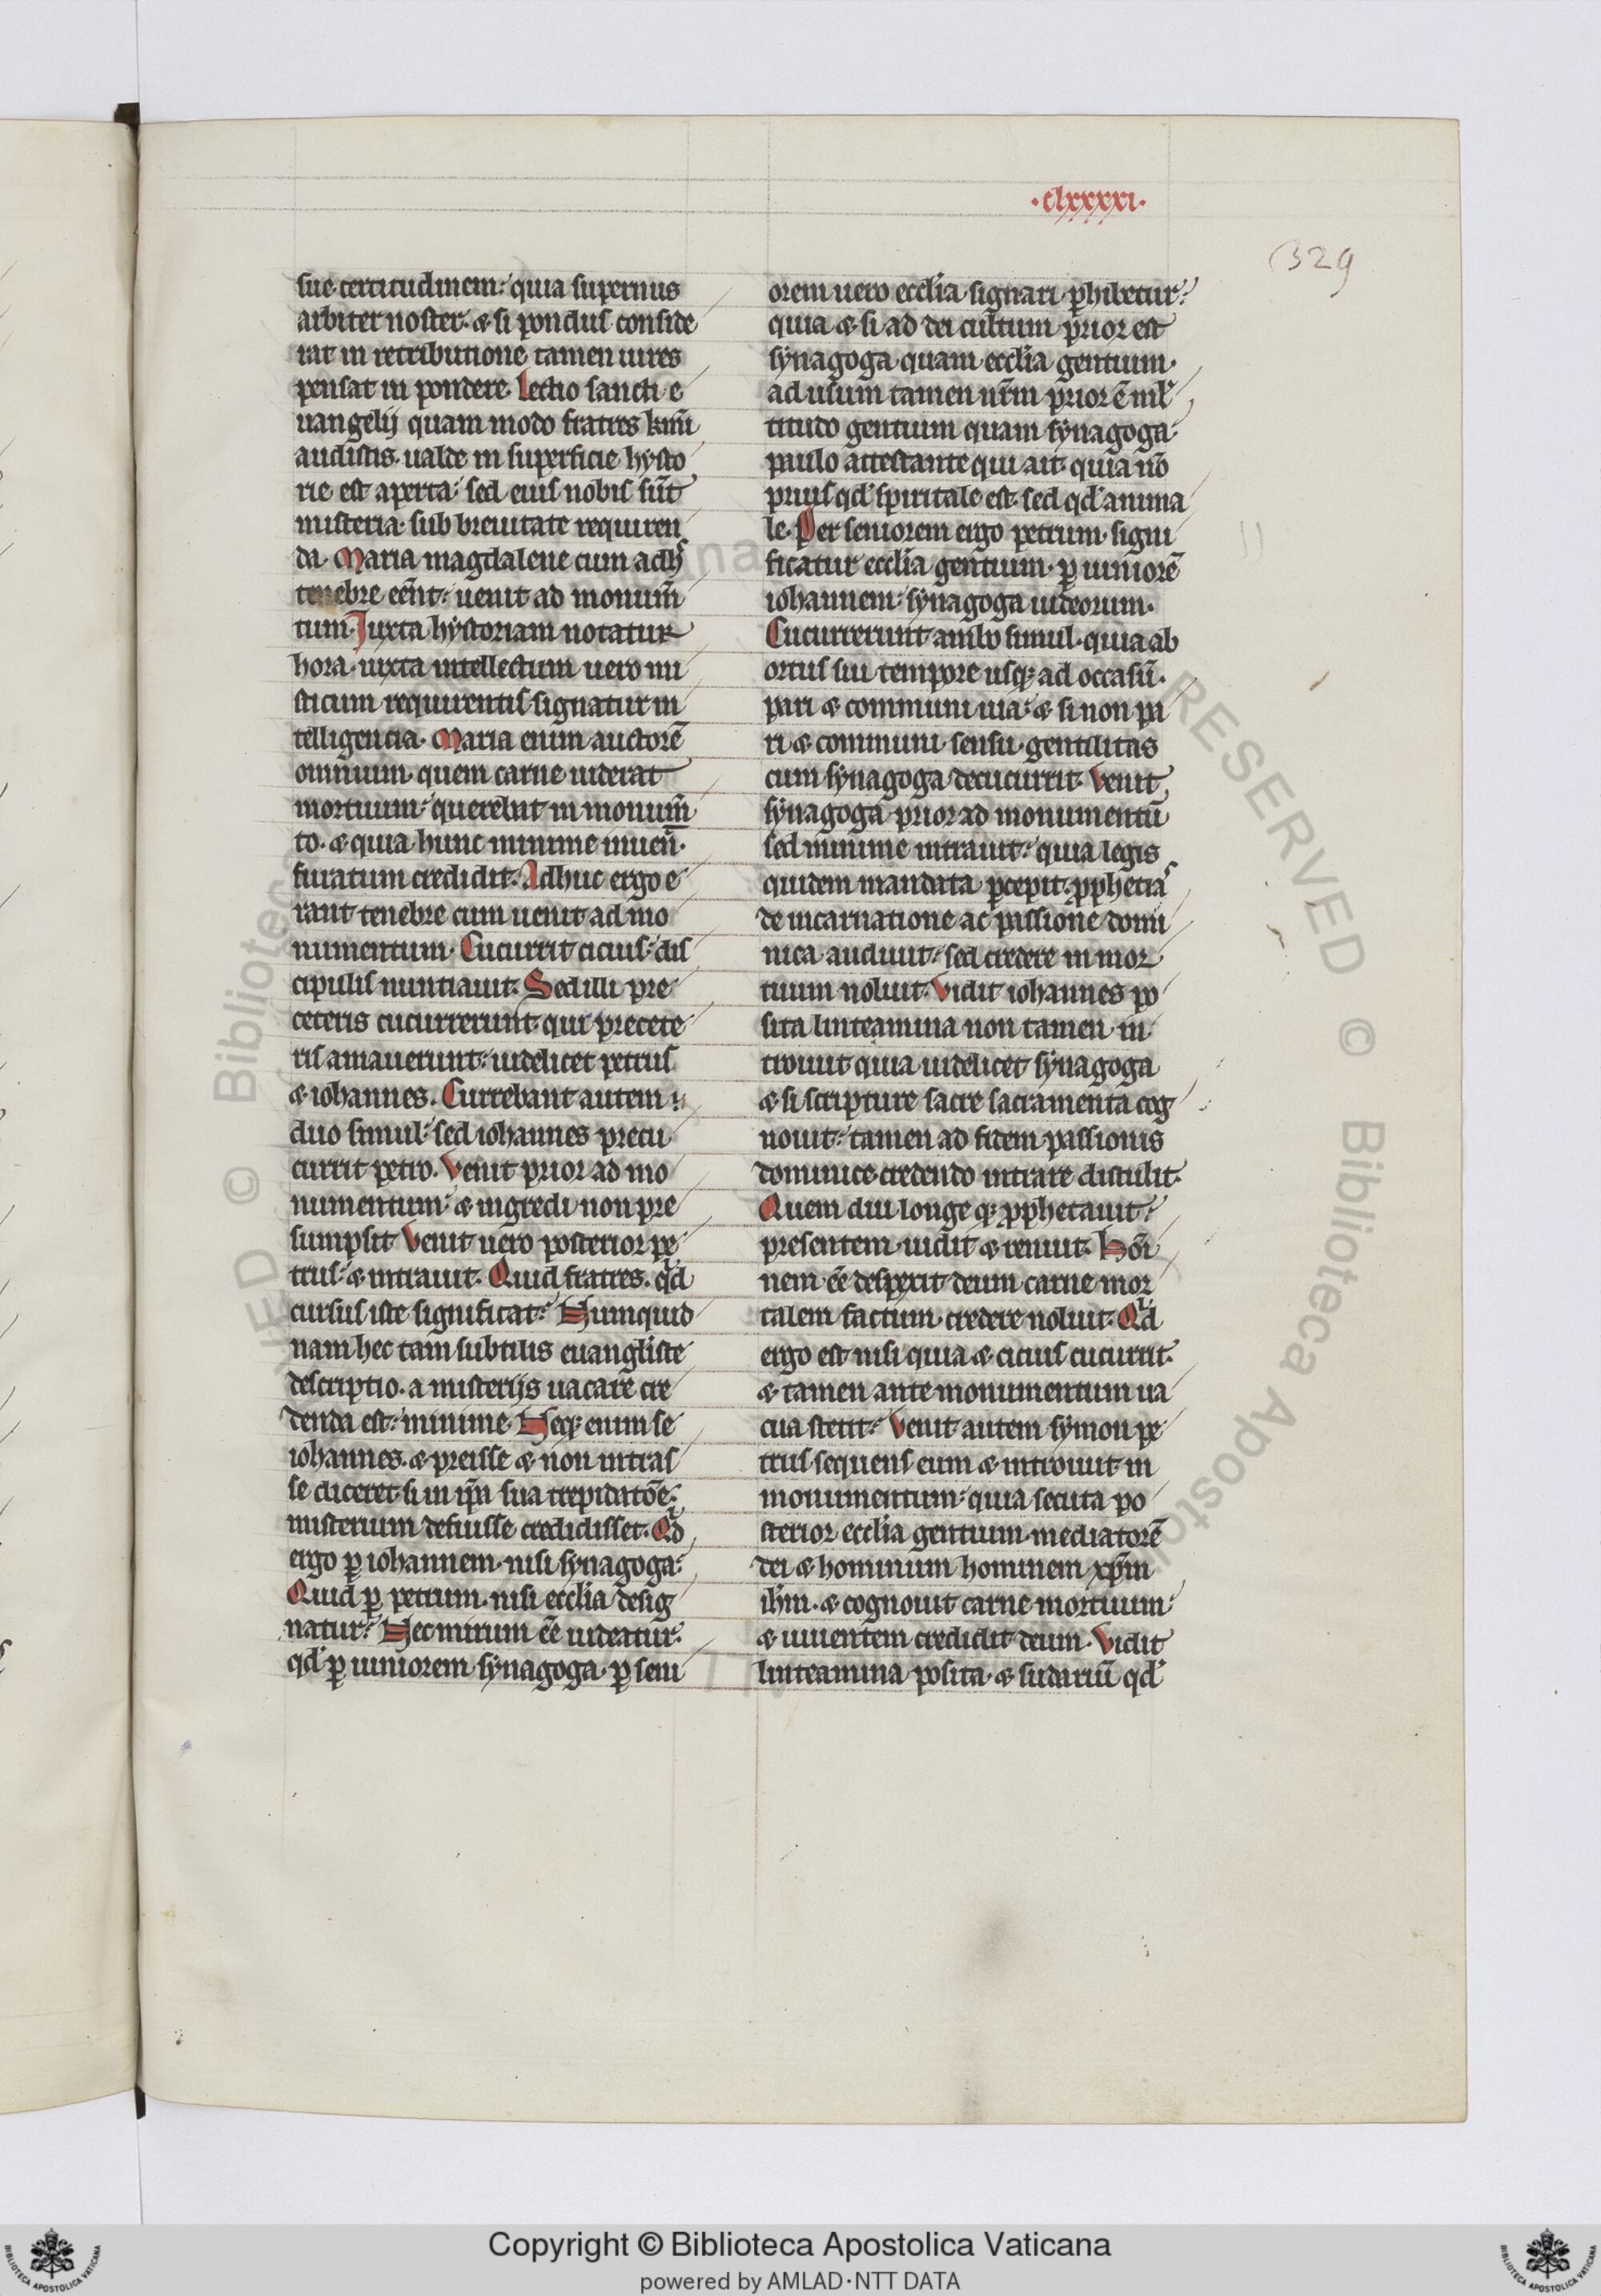 ·clxxxxi·
329
sue certitudinem: quia supernus
arbiter noster· ⁊ si pondus conside
rat in retributione tamen uires
pensat in pondere. Lectio sancti e
uangelij quam modo fratres km̄i
audistis· ualde in superficie hysto
rie est aperta: sed eius nobis sūt
misteria· sub breuitate requiren
da. Maria magdalene cum adhͨ
tenebre eēnt: uenit ad monum̄
tum· Iuxta hystoriam notatur
hora· iuxta intellectum uero mi
sticum requirentis· signatur in
telligencia. Maria enim auctorē
omnium quem carne uiderat
mortuum: querebat in monum̄
to· ⁊ quia hunc minime inuen̄·
furatum credidit. Adhuc ergo e
rant tenebre cum uenit ad mo
numentum. Cucurrit cicius: dis
cipulis nuntiauit. Sed illi pre
ceteris cucurrerunt· qui precete
ris amauerunt: uidelicet petrus
⁊ iohannes. Currebant autem
duo simul: sed iohannes precu
currit petro. Venit prior ad mo
numentum: ⁊ ingredi non pre
sumpsit Venit uero posterior pe
trus: ⁊ intrauit. Quid fratres. qͥd
cursus iste significat: Numquid
nam hec tam subtilis euangliste
descriptio· a misterijs uacare cre
denda est: minime. Neqꝫ enim se
iohannes· ⁊ preisse ⁊ non intras
se diceret· si in ip̄a sua trepidatōe:
misterium defuisse credidisset. Qͥd
ergo ꝑ iohannem· nisi synagoga:
Quid ꝑ petrum· nisi ecclīa desig
natur: Nec mirum eē uideatur:
qd̓ ꝑ iuniorem· synagoga· ꝑ seni
orem uero ecclīa· signari ꝑhibetur:
quia ⁊ si ad dei cultum prior est
synagoga quam ecclīa gentium·
ad usum tamen nr̄m prior ē ml̓
titudo gentium quam synagoga·
paulo attestante qui ait· quia nō
prius qd̓ spiritale est· sed qd̓ anima
le. Per seniorem ergo petrum· signi
ficatur ecclīa gentium· ꝑ iuniorē
iohannem: synagoga iudeorum.
Cucurrerunt ambo simul· quia ab
ortus sui tempore usqꝫ ad occasū.
pari ⁊ communi uia: ⁊ si non pa
ri ⁊ communi sensu· gentilitas
cum synagoga decucurrit. Venit
synagoga prior ad monumentū
sed minime intrauit: quia legis
quidem mandata ꝑcepit· ꝓphetias
de incarnatione ac passione domi
nica audiuit: sed credere in mor
tuum noluit. Vidit iohannes po
sita linteamina non tamen in
troiuit quia uidelicet synagoga
⁊ si scripture sacre sacramenta cog
nouit: tamen ad fidem passionis
dominice credendo intrare distulit.
Quem diu longe qꝫ ꝓphetauit:
presentem uidit ⁊ renuit. Hōi
nem eē despexit· deum carne mor
talem factum credere noluit. Qͥd
ergo est nisi quia ⁊ cicius cucurrit·
⁊ tamen ante monumentum ua
cua stetit: Venit autem symon pe
trus sequens eum ⁊ introiuit in
monumentum: quia secuta po
sterior ecclīa gentium· mediatorē
dei ⁊ hominum hominem xp̄m
ih̄m· ⁊ cognouit carne mortuum:
⁊ uiuentem credidit deum. Vidit
linteamina posita· ⁊ sudariū qd̓
Copyright © Biblioteca Apostolica Vaticana
powered by AMLAD·NTT DATA